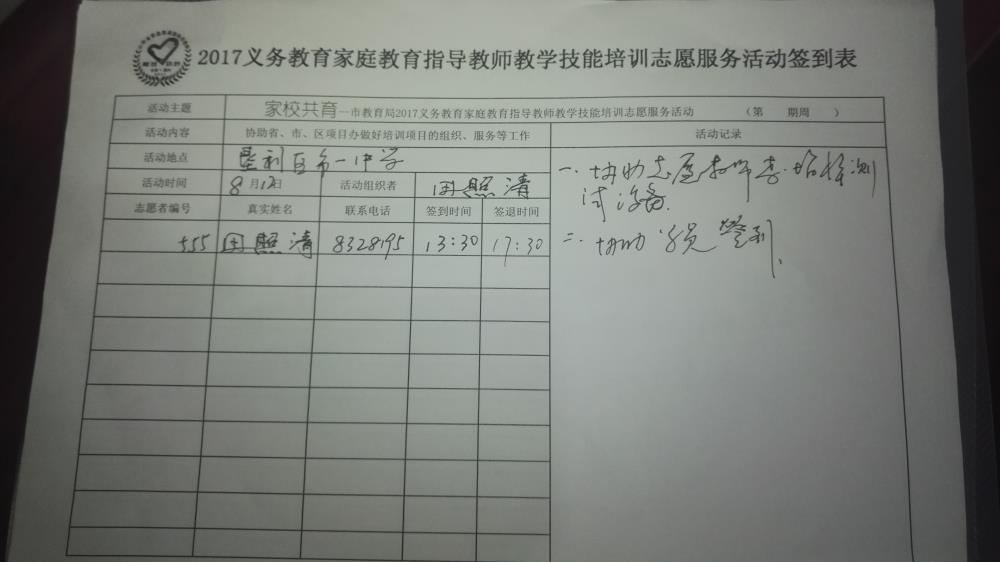 2017义务教育家庭教育指导教师教学技能培训志愿服务活动签到表
活动主题 家校共育—市教育局2017义务教育家庭教育指导教师教学技能培训志愿服务活动 （第 期周 ）
活动内容 协助省、市、区项目办做好培训项目的组织、服务等工作 活动记录
活动地点 垦利区第一中学
活动时间 8月12日 活动组织者 田照清
志愿者编号 真实姓名 联系电话 签到时间 签退时间
555 田照清 8328195 13:30 17:30
一、协助志愿教师李 测
试设备.
二、协助学员签到.